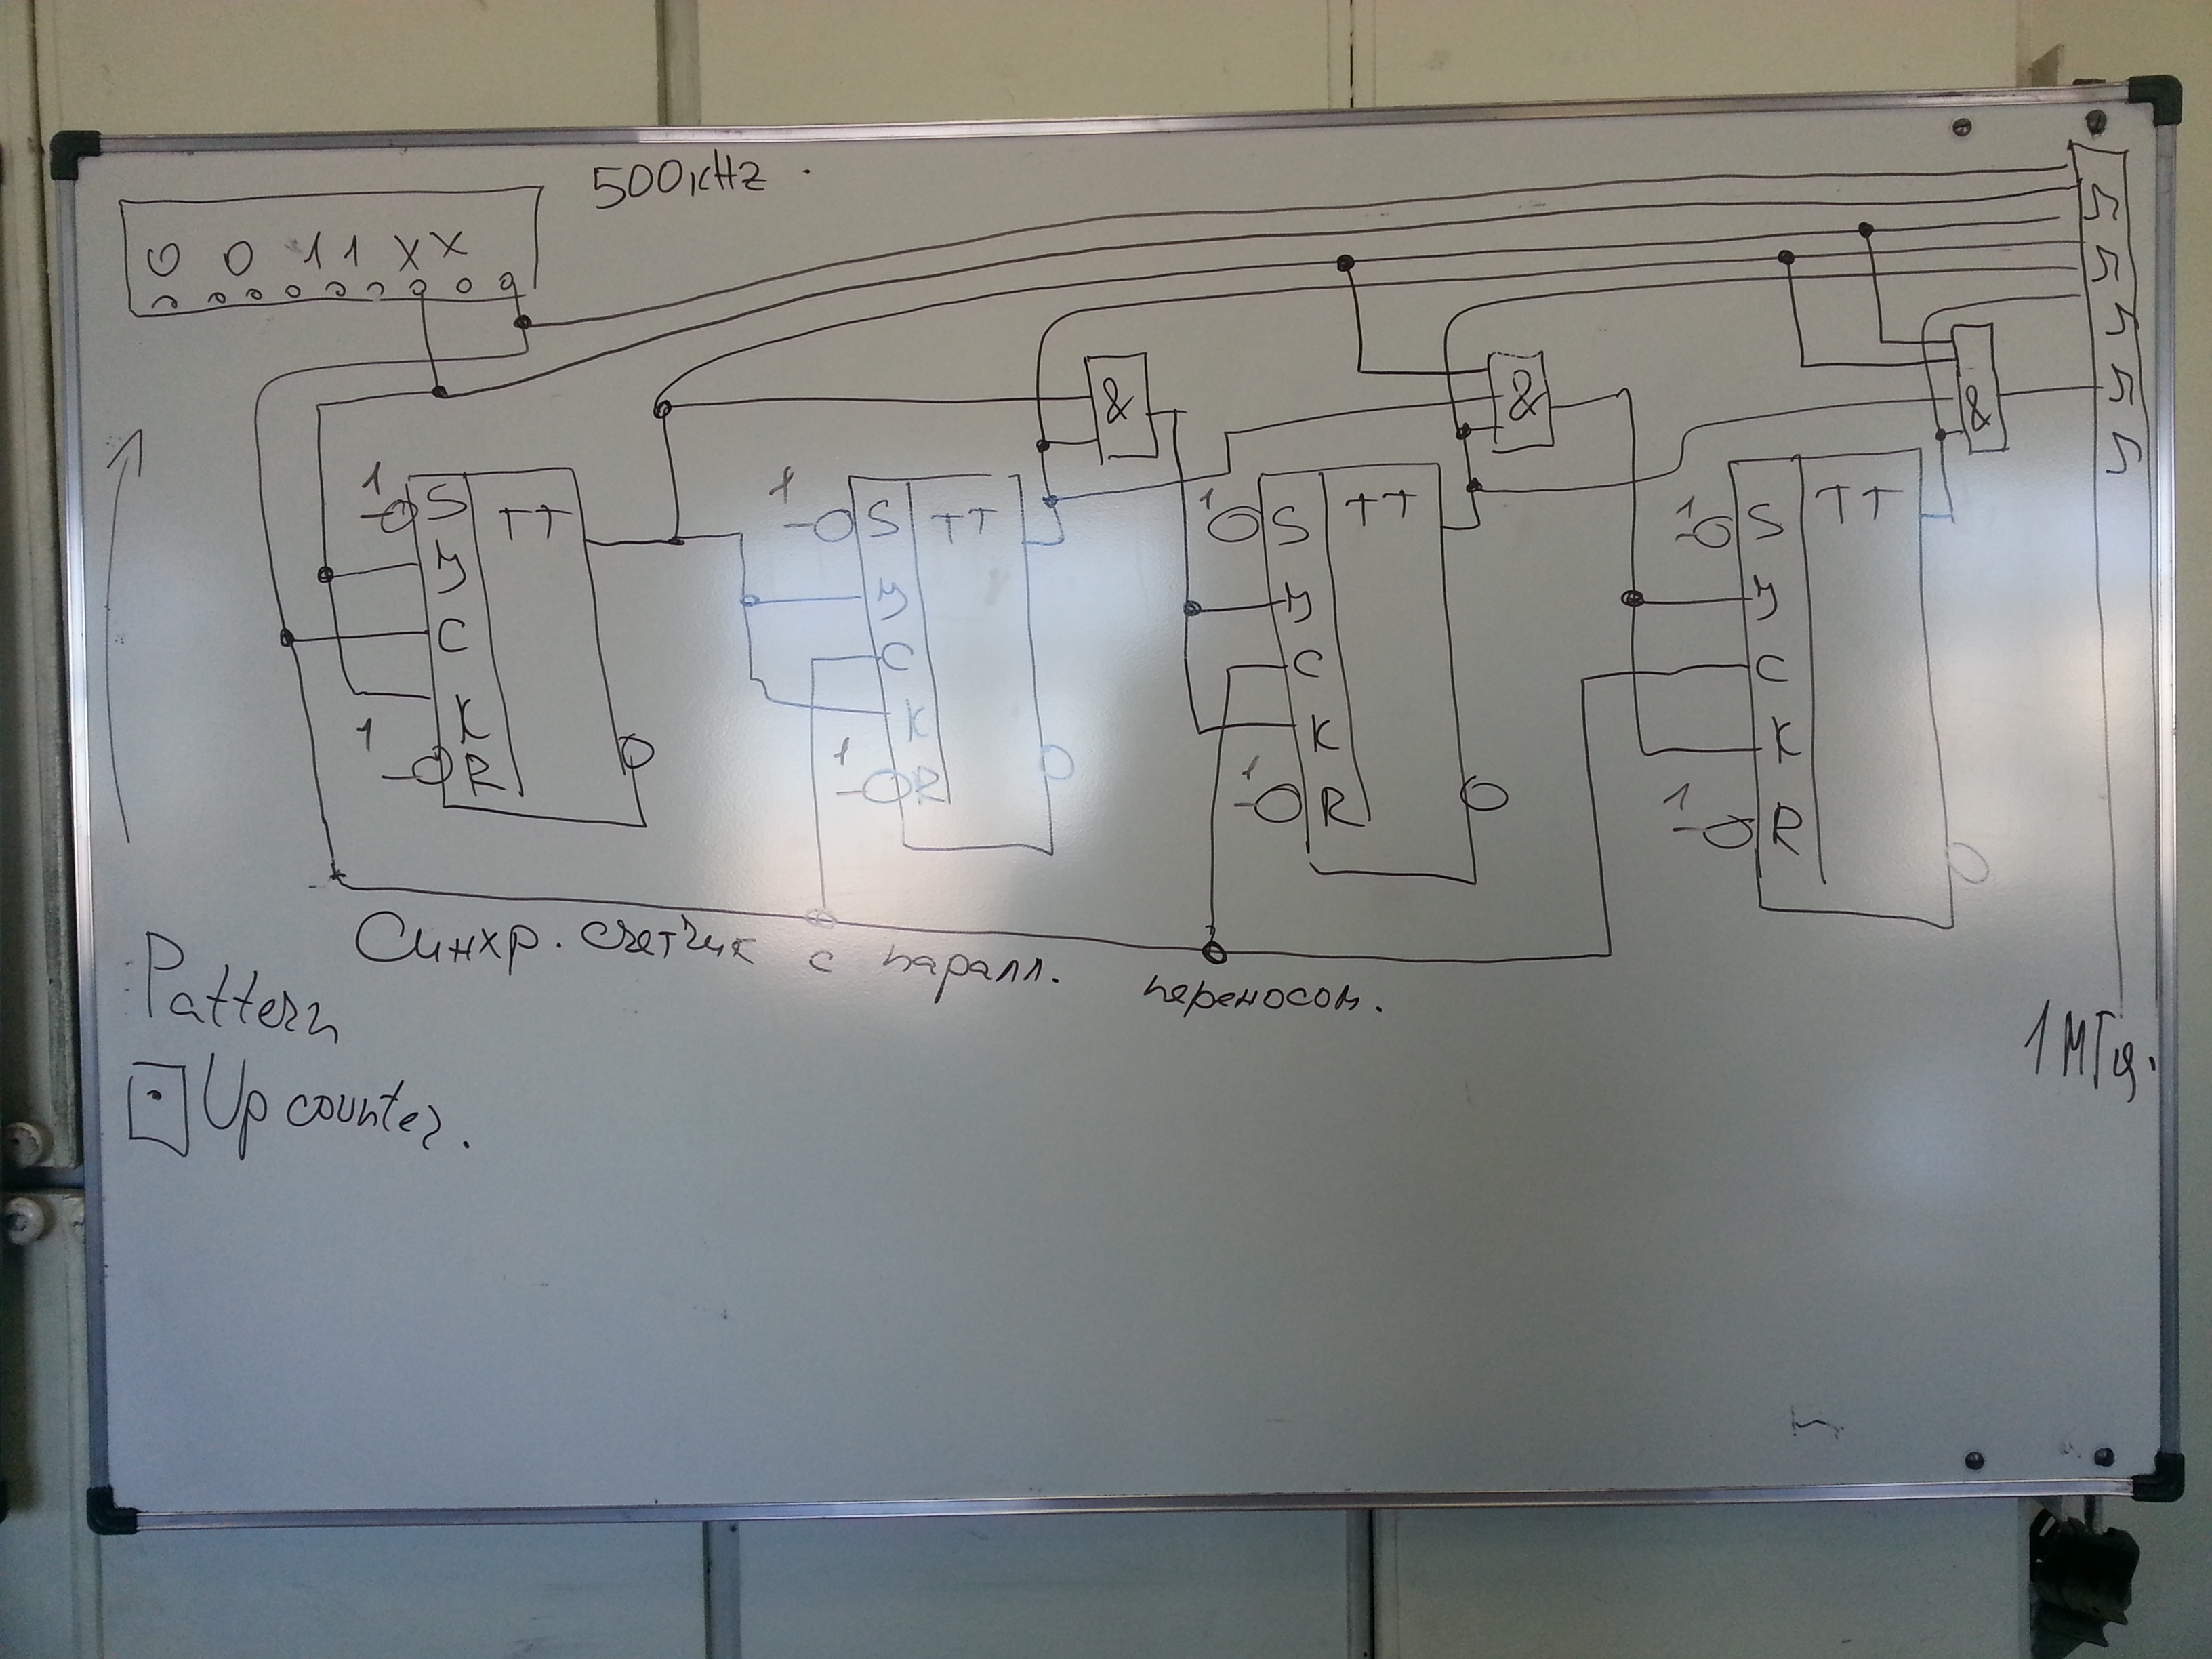 500кHz.
0 0 1 1 X X
& & &
1 S TT
J
C
K
1 R
1 S TT
J
C
K
1 R
1 S TT
J
C
K
1 R
1 S TT
J
C
K
1 R
Синхр. счетчик с паралл. переносом.
Pattern
Up counter.
1 МГц.